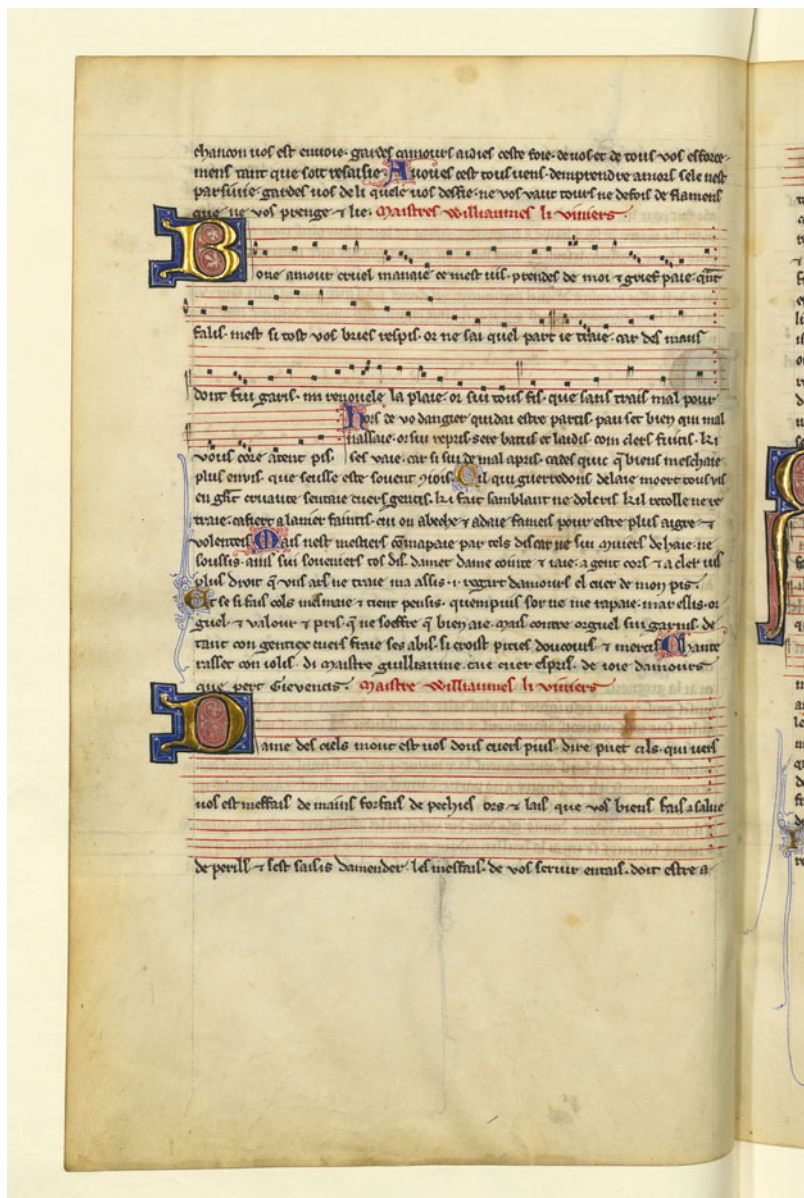 chancon uos est enuoie. gardes camours aidies ceste foie. de uos et de tous vos efforce-
mens tant que soit resaisie. Auoues cest tous uens. demprendre amors sele nest
parsuiuie. gardes uos de li quele uos deffie. ne vos vaut tours ne defois de flamens
que ne vos prenge ⁊ lie. Maistres williaumes li viniers.
Bone amour cruel manaie ce mest uis. prendes de moi ⁊ grief paie. qnt
falis. mest si tost vos bries respis. or ne sai quel part ie traie. car des maus
dont fui garis. mi renouele la plaie. or sui tous fis. que sans trais mal pour
Hors de vo dangier quidai estre partis. pau set bien qui mal
nassaie. or sui repris. sere batus et laidis com clers fuitis. ki
vous core atent pis. ses vaie. car si sui de mal apris. cades quic q biens meschaie
plus enuis. que seusse este souent
Cil qui guerredons delaie moert tous vis
en grant cruaute sentaie cuers gentis. ki fait samblant ne dolers. kil retolle ne re
traie. cafiert a lanier faintis. cui on abeche ⁊ adaie fameis pour estre plus aigre ⁊
volenteis. Mais nest mestiers comapaie par tels dis car ne sui muiers de haie. ne
soussis. ains sui soueniers tos dis. damer dame cointe ⁊ vaie. a gent cors ⁊ a cler uis
plus droit q vns ars ne traie ma assis. i. regart damours el cuer de mon pis.
Et se si fais cols mesmaie ⁊ tient pensis. quempuis sor ne me rapaie. mar
guel. ⁊ valour ⁊ pris. q ne soeffre q bien aie. Mais contre orguel sui garnis. de
tant con gentiex cuers fraie ses abis. si croist pities doucours ⁊ mercis. Chante
rasses con iolis. di maistre guilliaume. cuer espris. de ioie damours
que pert Gieuencis. Maistre williaumes li viniers
Dame des ciels mout est uos dous cuers pius. dire puet cils. qui uers
uos est meffais de maius forfais de pechies ors ⁊ lais que vos biens fais a salue
de perill ⁊ sest saisis damender. les meffais. de vos seruir entais. doit estre a